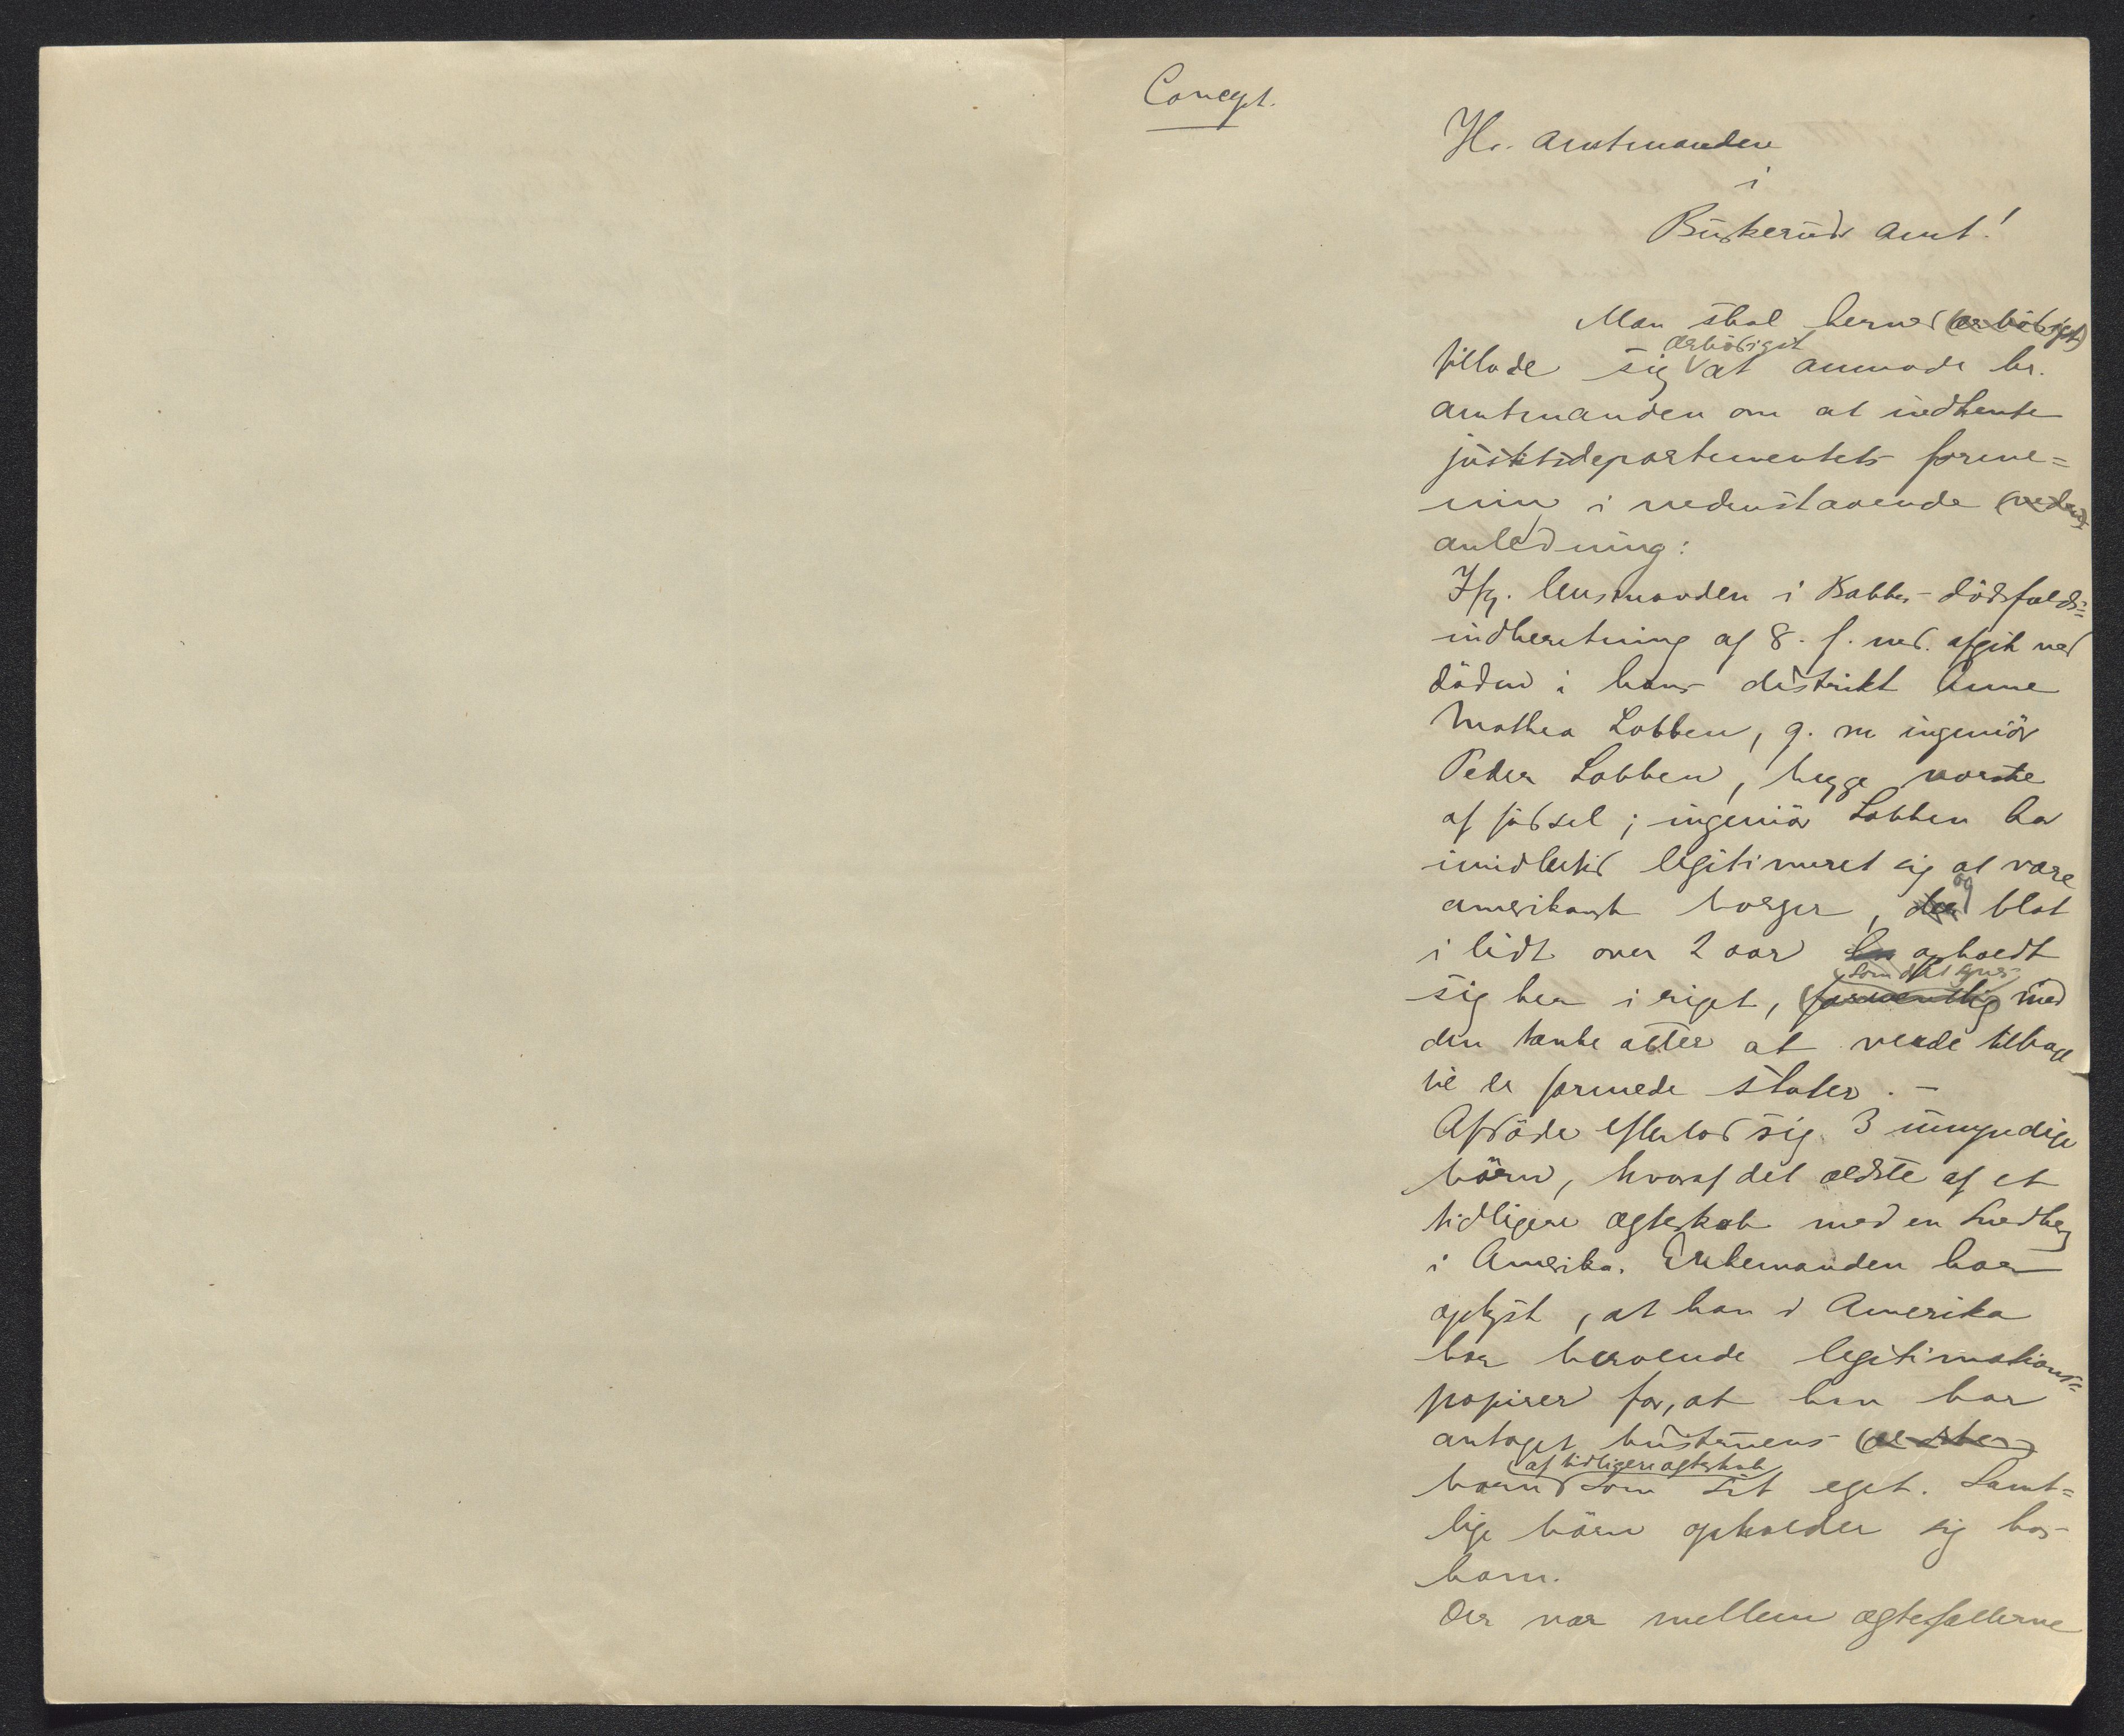 Concept.
Hr. Amtmanden
i
Buskeruds Amt!
Man skal herved (ærbödigst)
tillade sig ærbödigst at anmode hr.
amtmanden om at indhente
justitsdepartementets forme=
ning i nedenstaaende
anledning:
Ifg. lensmanden i dödsfalds=
indberetning af 8. f. md. afgik ved
döden i hans distrikt Anne
Mathea Lobben, g. m. ingeniör
Peder Lobben, begge norske
af födsel; ingeniör Lobben har
imidlertid legitimeret sig at være
amerikansk borger, og blot
i lidt over 2 aar opholdt
sig her i riget, (formentlig) som det synes med
den tanke atter at vende tilbage
til de forenede stater. –
Afdöde efterlod sig 3 umyndige
börn, hvoraf det ældste af et
tidligere ægteskab med en Lindberg
i Amerika. Enkemanden har
oplyst, at han i Amerika
har beroende legitimations=
papirer for, at han har
antaget hustruens (ældste)
barn af tidligere ægteskab som sit eget. Samt=
lige börn opholder sig hos
ham.
Der var mellem ægtefællerne